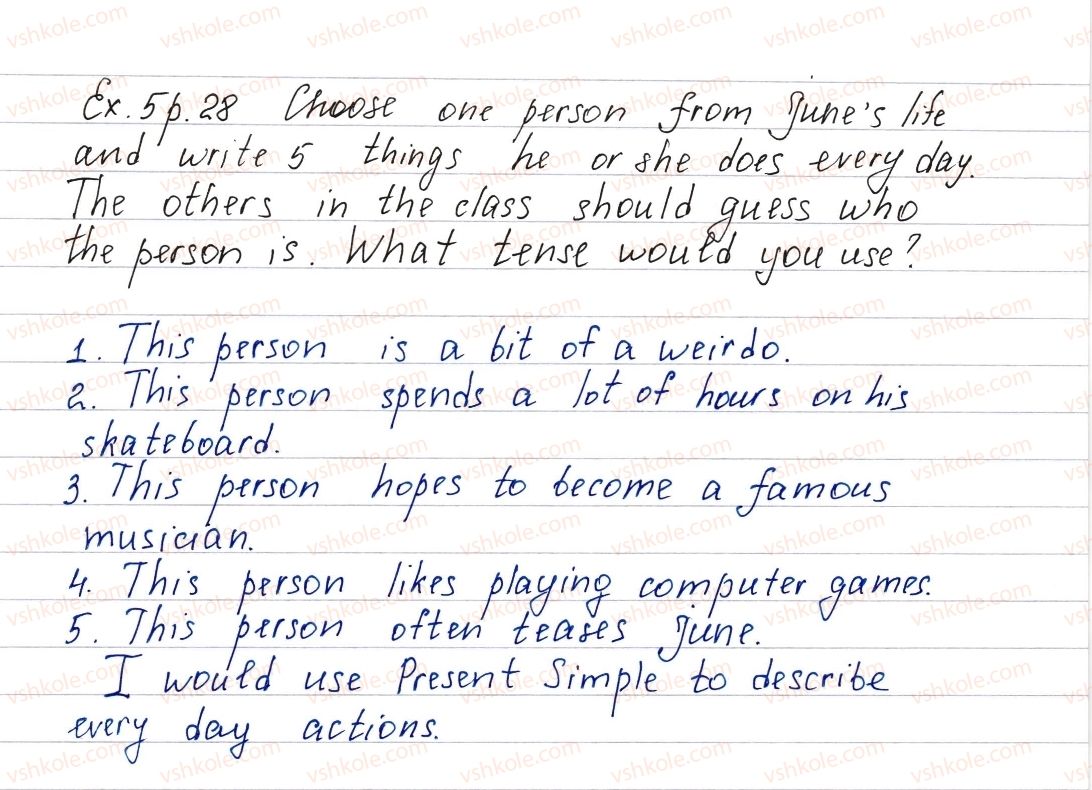 Ex. 5 p. 28 Choose one person from June's life
and write 5 things he or she does every day.
The others in the class should guess who
the person is. What tense would you use?
1. This person is a bit of a weirdo.
2. This person spends a lot of hours on his
skateboard.
3. This person hopes to become a famous
musician.
4. This person likes playing computer games.
5. This person often teases June.
I would use Present Simple to describe
every day actions.
vshkole.com